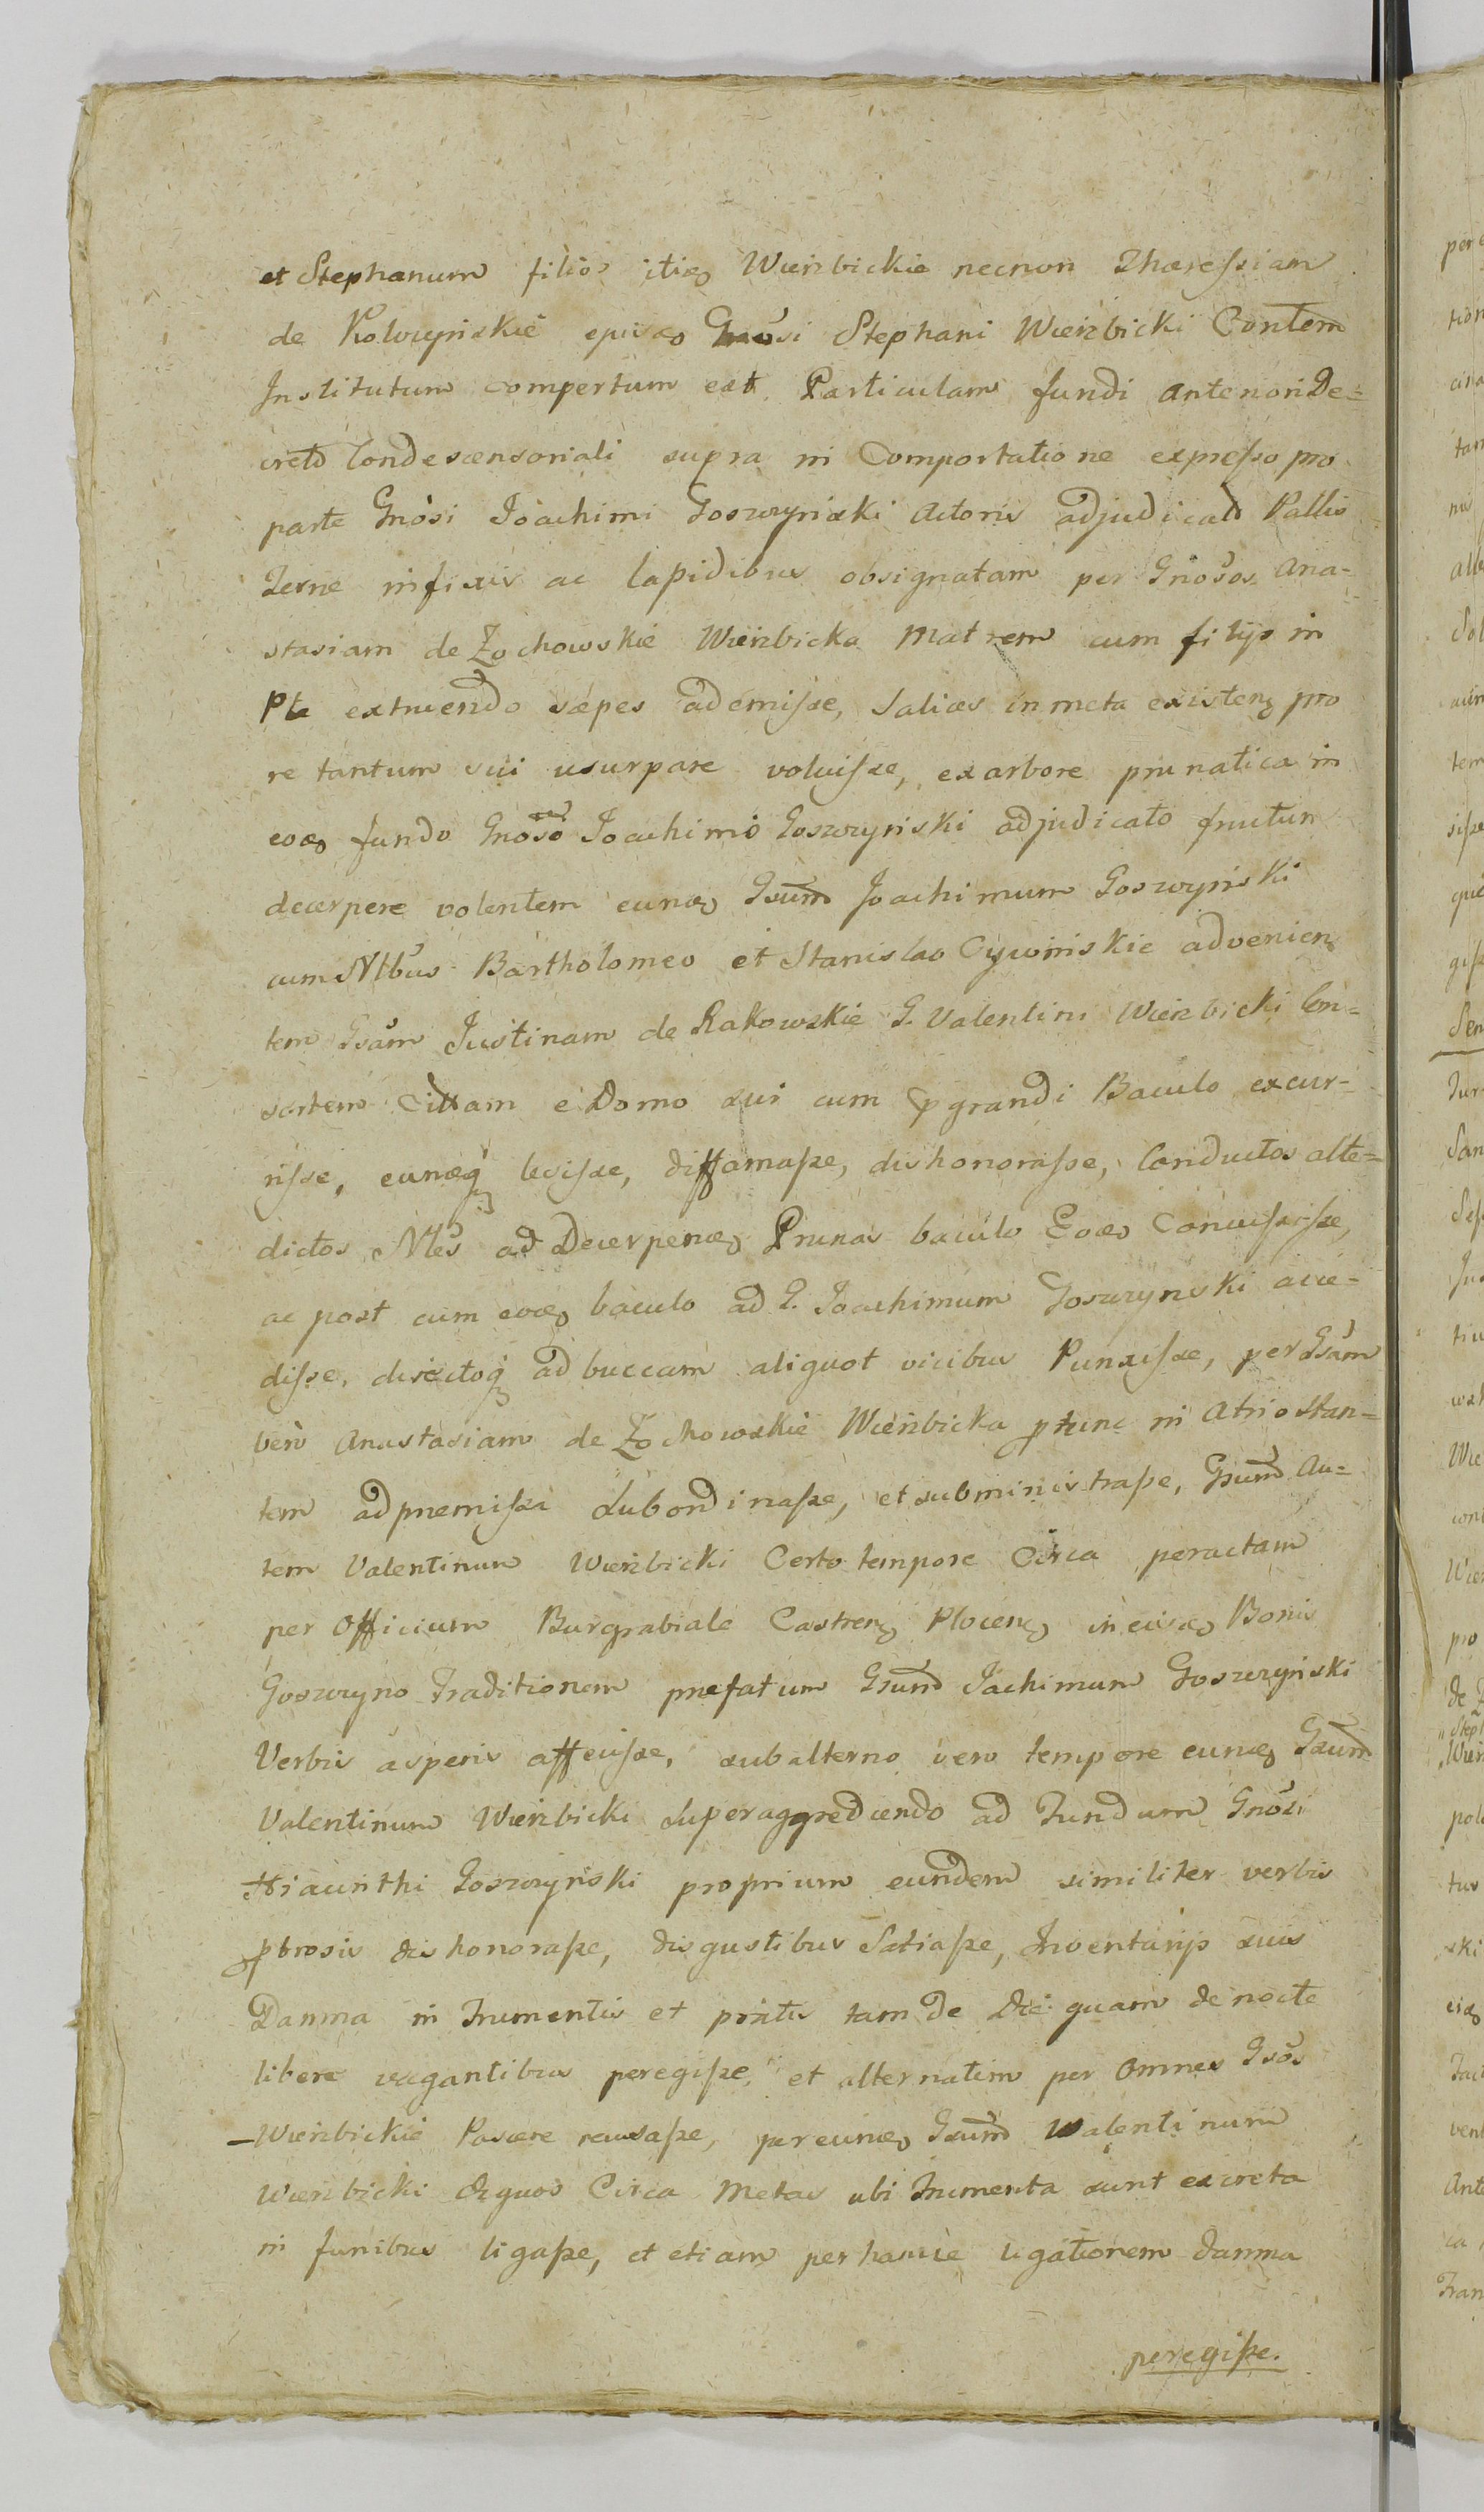 et Stephanum filios itiq Wierzbickie necnon Thæressiam
de Kolczyńskie ejusq Gnosi Stephani Wierzbicki Contem
Institutum compertum est. Particulam fundi anteriori De=
creto Condescensoriali supra in Comportatione expresso pro
parte Gnosi Joachimi Goszczyński Actoris adjudicato Pallis
Terræ infixis ac lapidibus obsignatam per Gnosos Ana-
stasiam de Żochowskie Wierzbicka Matrem cum filijs in
Pte extruendo sæpes ademisse, Salices in meta existeñ pro
re tantum sui usurpare voluisse, ex arbore prunatica in
eoq fundo Gnoso Joachimo Goszczyński adjudicato fructum
decerpere volentem eunq Gsum Joachimum Goszczyński
cum Nlbus Bartholomeo et Stanislao Cywińskie advenien
tem Gsam Justinam de Rakowskie G. Valentini Wierzbicki Con=
sortem Cittam e Domo sui cum pgrandi Baculo excur-
risse, eunqq lesisse, diffamasse, dishonorasse, Conductos alte=
dictos Nles ad Decerpenq Prunas baculo Eoq Concussisse,
ac post cum eoq baculo ad G. Joachimum Goszczyński acce-
disse, directoq ad buccam aliquot vicibus Punxisse, per Gsam
vero Anastasiam de Żochowskie Wierzbicka ptunc in Atrio stan=
tem ad premissa subordinasse, et subministrasse, Gsum Au=
tem Valentinum Wierzbicki Certo tempore Circa peractam
per Officium Burgrabiale Castreñ Plocen in eisq Bonis
Goszczyno Traditionem prefatum Gsum Jachimum Goszczyński
Verbis asperis affecisse, sub alterno vero tempore eunq Gsum
Valentinum Wierzbicki superaggrediendo ad Fundum Gnosi
Hiacinthi Goszczyński proprium eundem similiter verbis
pbrosis dishonorasse, disgustibus Satiasse, Inventarijs suis
Damna in Frumentis et pratis tam de Die quam de nocte
libere vagantibus peregisse, et alternatim per Omnes Gsos
Wierzbickie Pascere recusasse, per eunq Gsum Walentinum
Wierzbicki Equos Circa Metas ubi Frumenta sunt excreta
in funibus ligasse, et etiam per hancce ligationem damna
peregisse.